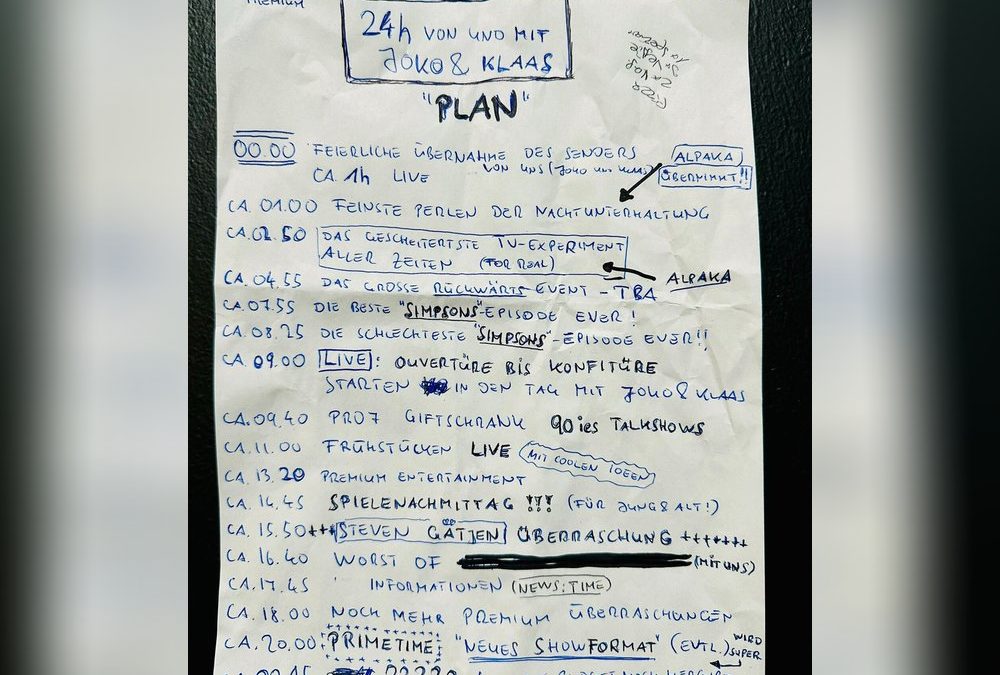 PREMIUM
24h VON UND MIT
JOKO & KLAAS
Pizza
2x Vege
"PLAN"
00.00 FEIERLICHE ÜBERNAHME DES SENDERS
VON UNS (JOKO UND KLAAS)
CA 1h LIVE
ALPAKA
ÜBERNIMMT!!
CA. 01.00 FEINSTE PERLEN DER NACHTUNTERHALTUNG
CA. 02.50 DAS GESCHEITERTSTE TV-EXPERIMENT
ALLER ZEITEN (FOR REAL)
ALPAKA
CA. 04.55 DAS GROSSE RÜCKWÄRTS-EVENT - TBA
CA. 07.55 DIE BESTE "SIMPSONS"-EPISODE EVER!
CA. 08.25 DIE SCHLECHTESTE "SIMPSONS"-EPISODE EVER!!
CA. 09.00 LIVE: OUVERTÜRE BIS KONFITÜRE
STARTEN IN DEN TAG MIT JOKO & KLAAS
CA. 09.40 PRO7 GIFTSCHRANK 90ies TALKSHOWS
CA. 11.00 FRÜHSTÜCKEN LIVE MIT COOLEN IDEEN
CA. 13.20 PREMIUM ENTERTAINMENT
CA. 14.45 SPIELENACHMITTAG !!! (FÜR JUNG & ALT!)
CA. 15.50 +++ STEVEN GÄTJEN ÜBERRASCHUNG +++++++
CA. 16.40 WORST OF (MIT UNS)
CA. 17.45 INFORMATIONEN (NEWS:TIME)
CA. 18.00 NOCH MEHR PREMIUM ÜBERRASCHUNGEN
CA. 20.00 PRIMETIME: "NEUES SHOWFORMAT" (EVTL.) WIRD
SUPER